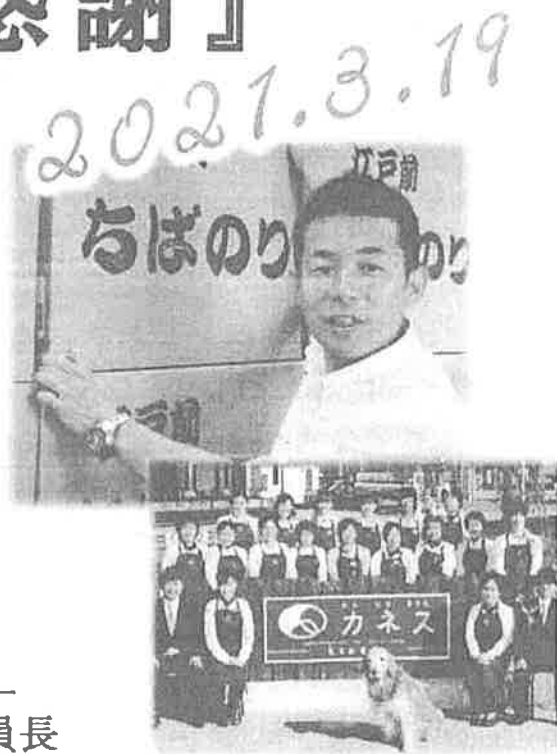 感謝』
2021.3.19
江戸前
ちばのり
のり
江戸前
カネス
員長